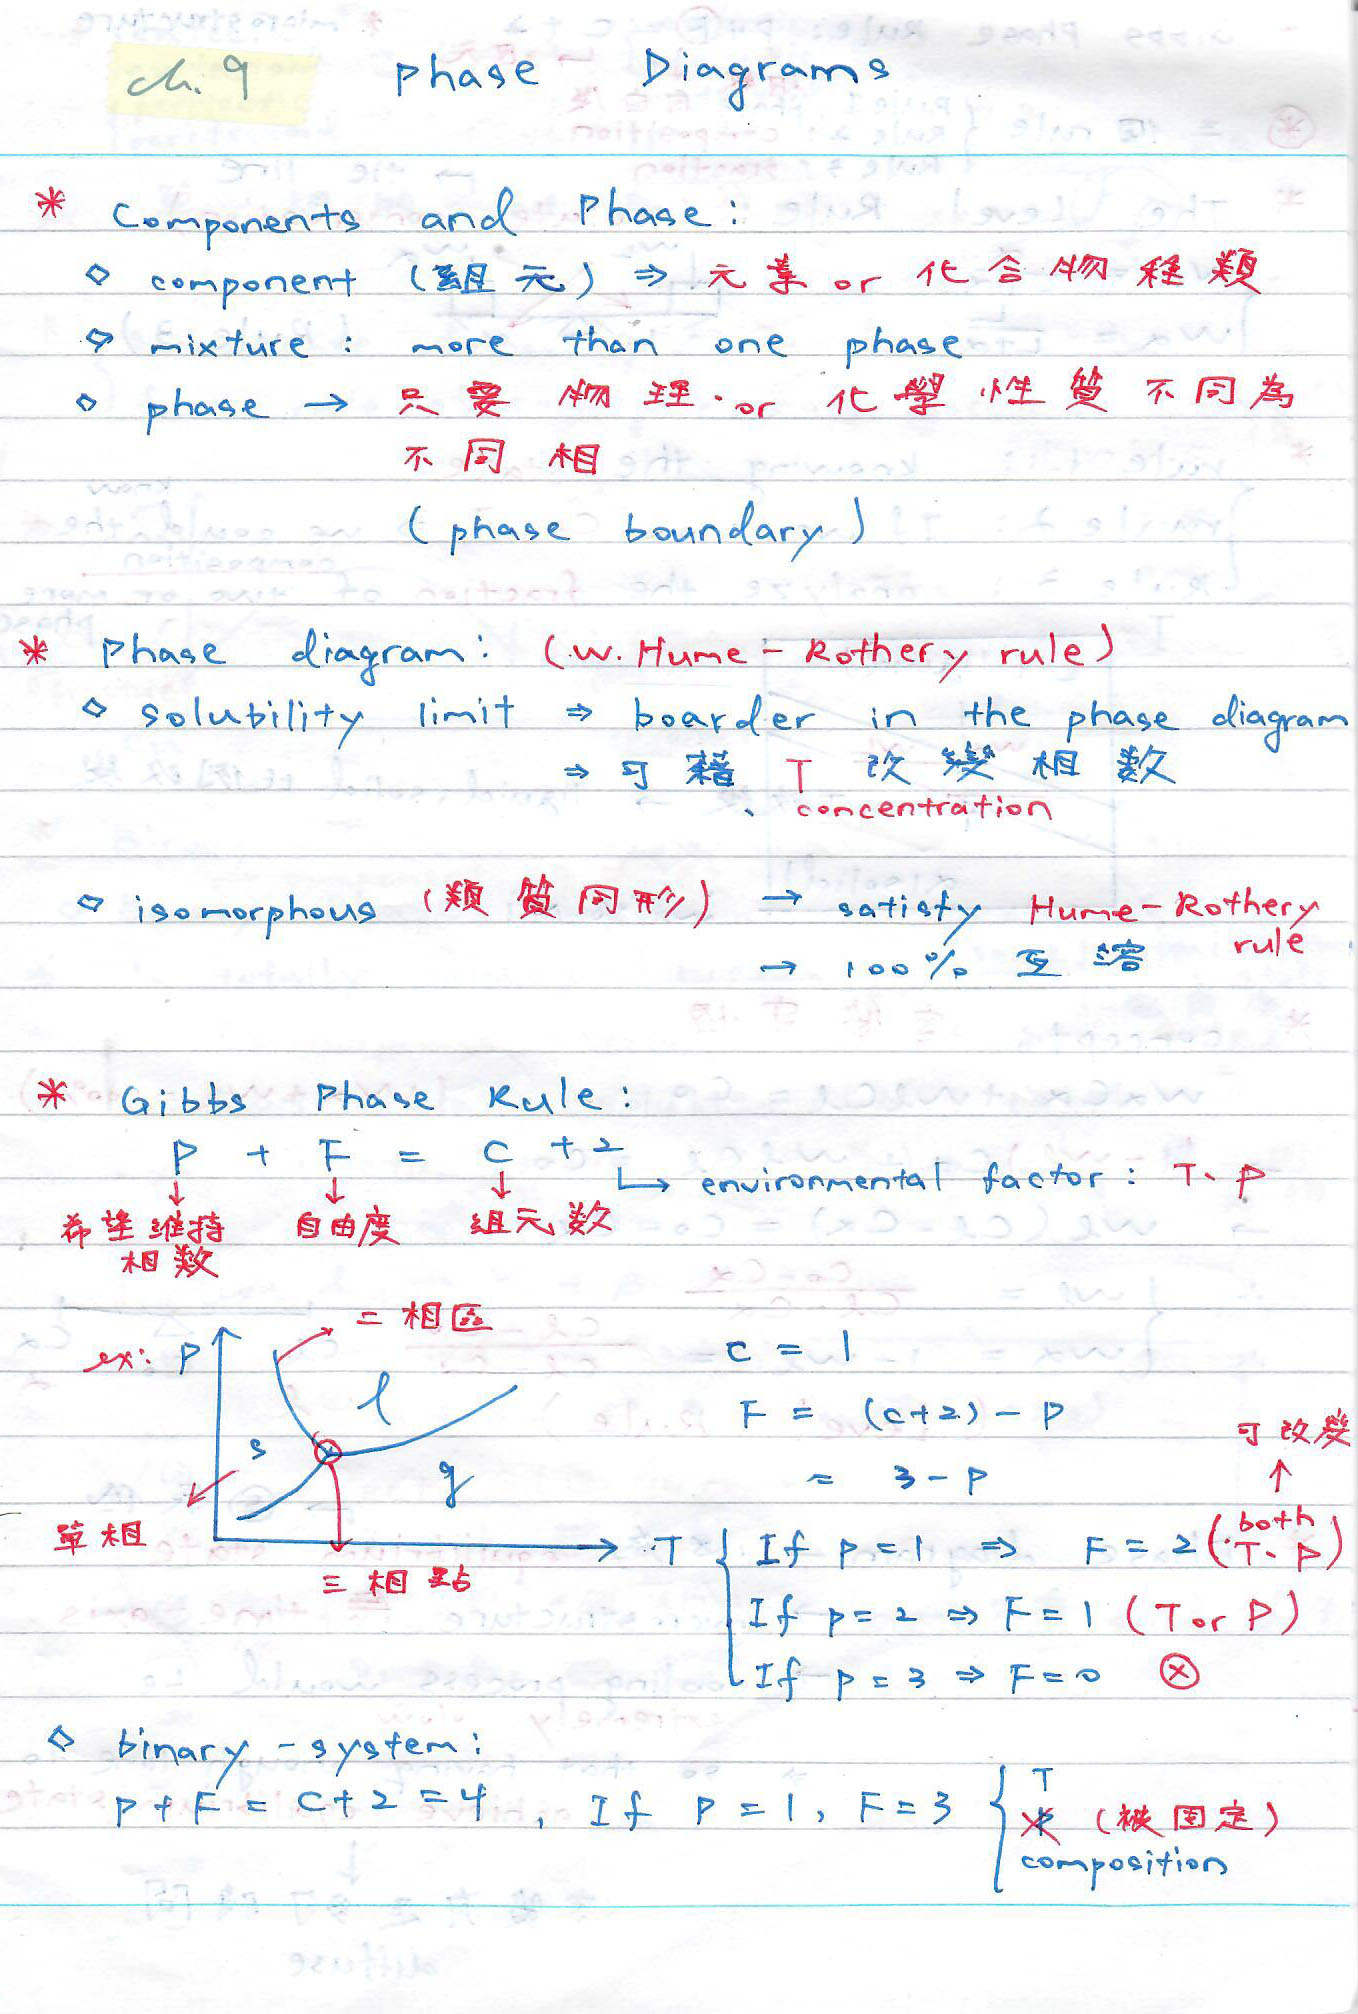 ch. 9 Phase Diagrams
* Components and Phase:
◇ component (組元) ⇒ 元素 or 化合物種類
◇ mixture: more than one phase
◇ phase → 只要物理.or 化學性質不同為
不同相
(phase boundary)
* Phase diagram: (W. Hume-Rothery rule)
◇ solubility limit ⇒ boarder in the phase diagram
⇒ 可藉 T 改變相數
、concentration
◇ isomorphous (類質同形) → satisfy Hume-Rothery
rule
→ 100% 互溶
* Gibbs Phase Rule:
P + F = C + 2
↓ ↓ ↓ ↳ environmental factor: T、P
希望維持 自由度 組元數
相數
ex: P
二相區
l
s
g
單相
三相點
T
C = 1
F = (c+2) - P
= 3 - P
可改變
↑
If P = 1 ⇒ F = 2 (both T、P)
If P = 2 ⇒ F = 1 (T or P)
If P = 3 ⇒ F = 0 ⊗
◇ binary-system:
P + F = C + 2 = 4, If P = 1, F = 3
T
P (被固定)
composition